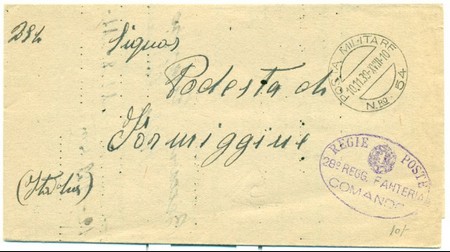 Signor
Podestà di
Formiggine
(Italia)
POSTA MILITARE
10.11.39.XVIII-10
N.RO 54
REGIE POSTE
28º REGG. FANTERIA
COMANDO
10/-